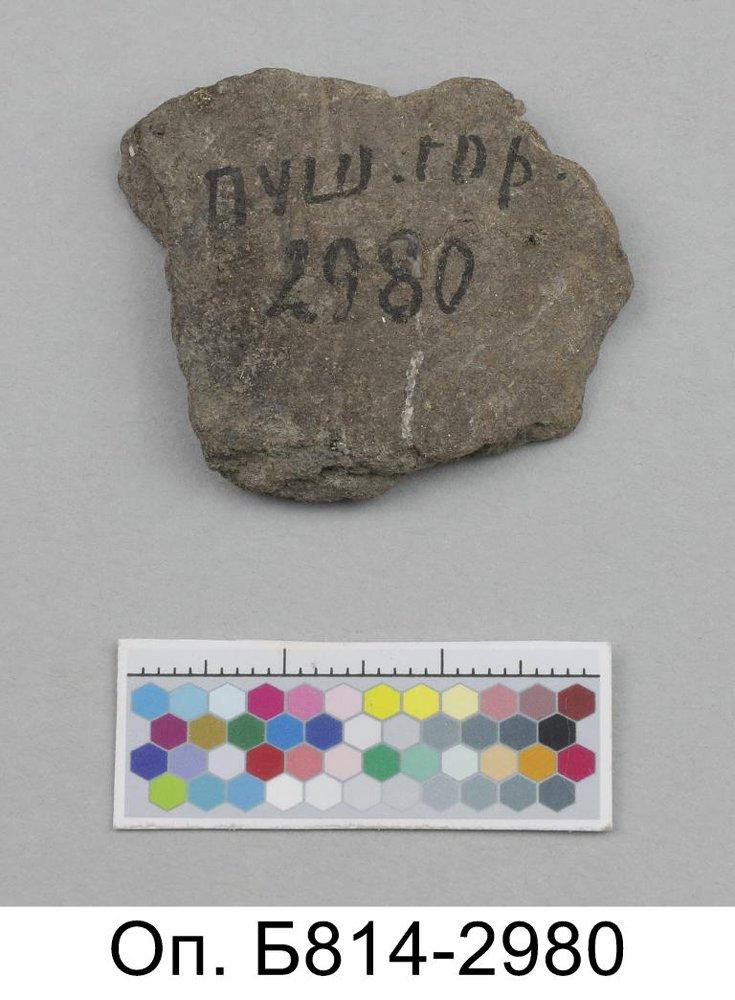 ПУШ.ГОР.
2980
Оп. Б814-2980